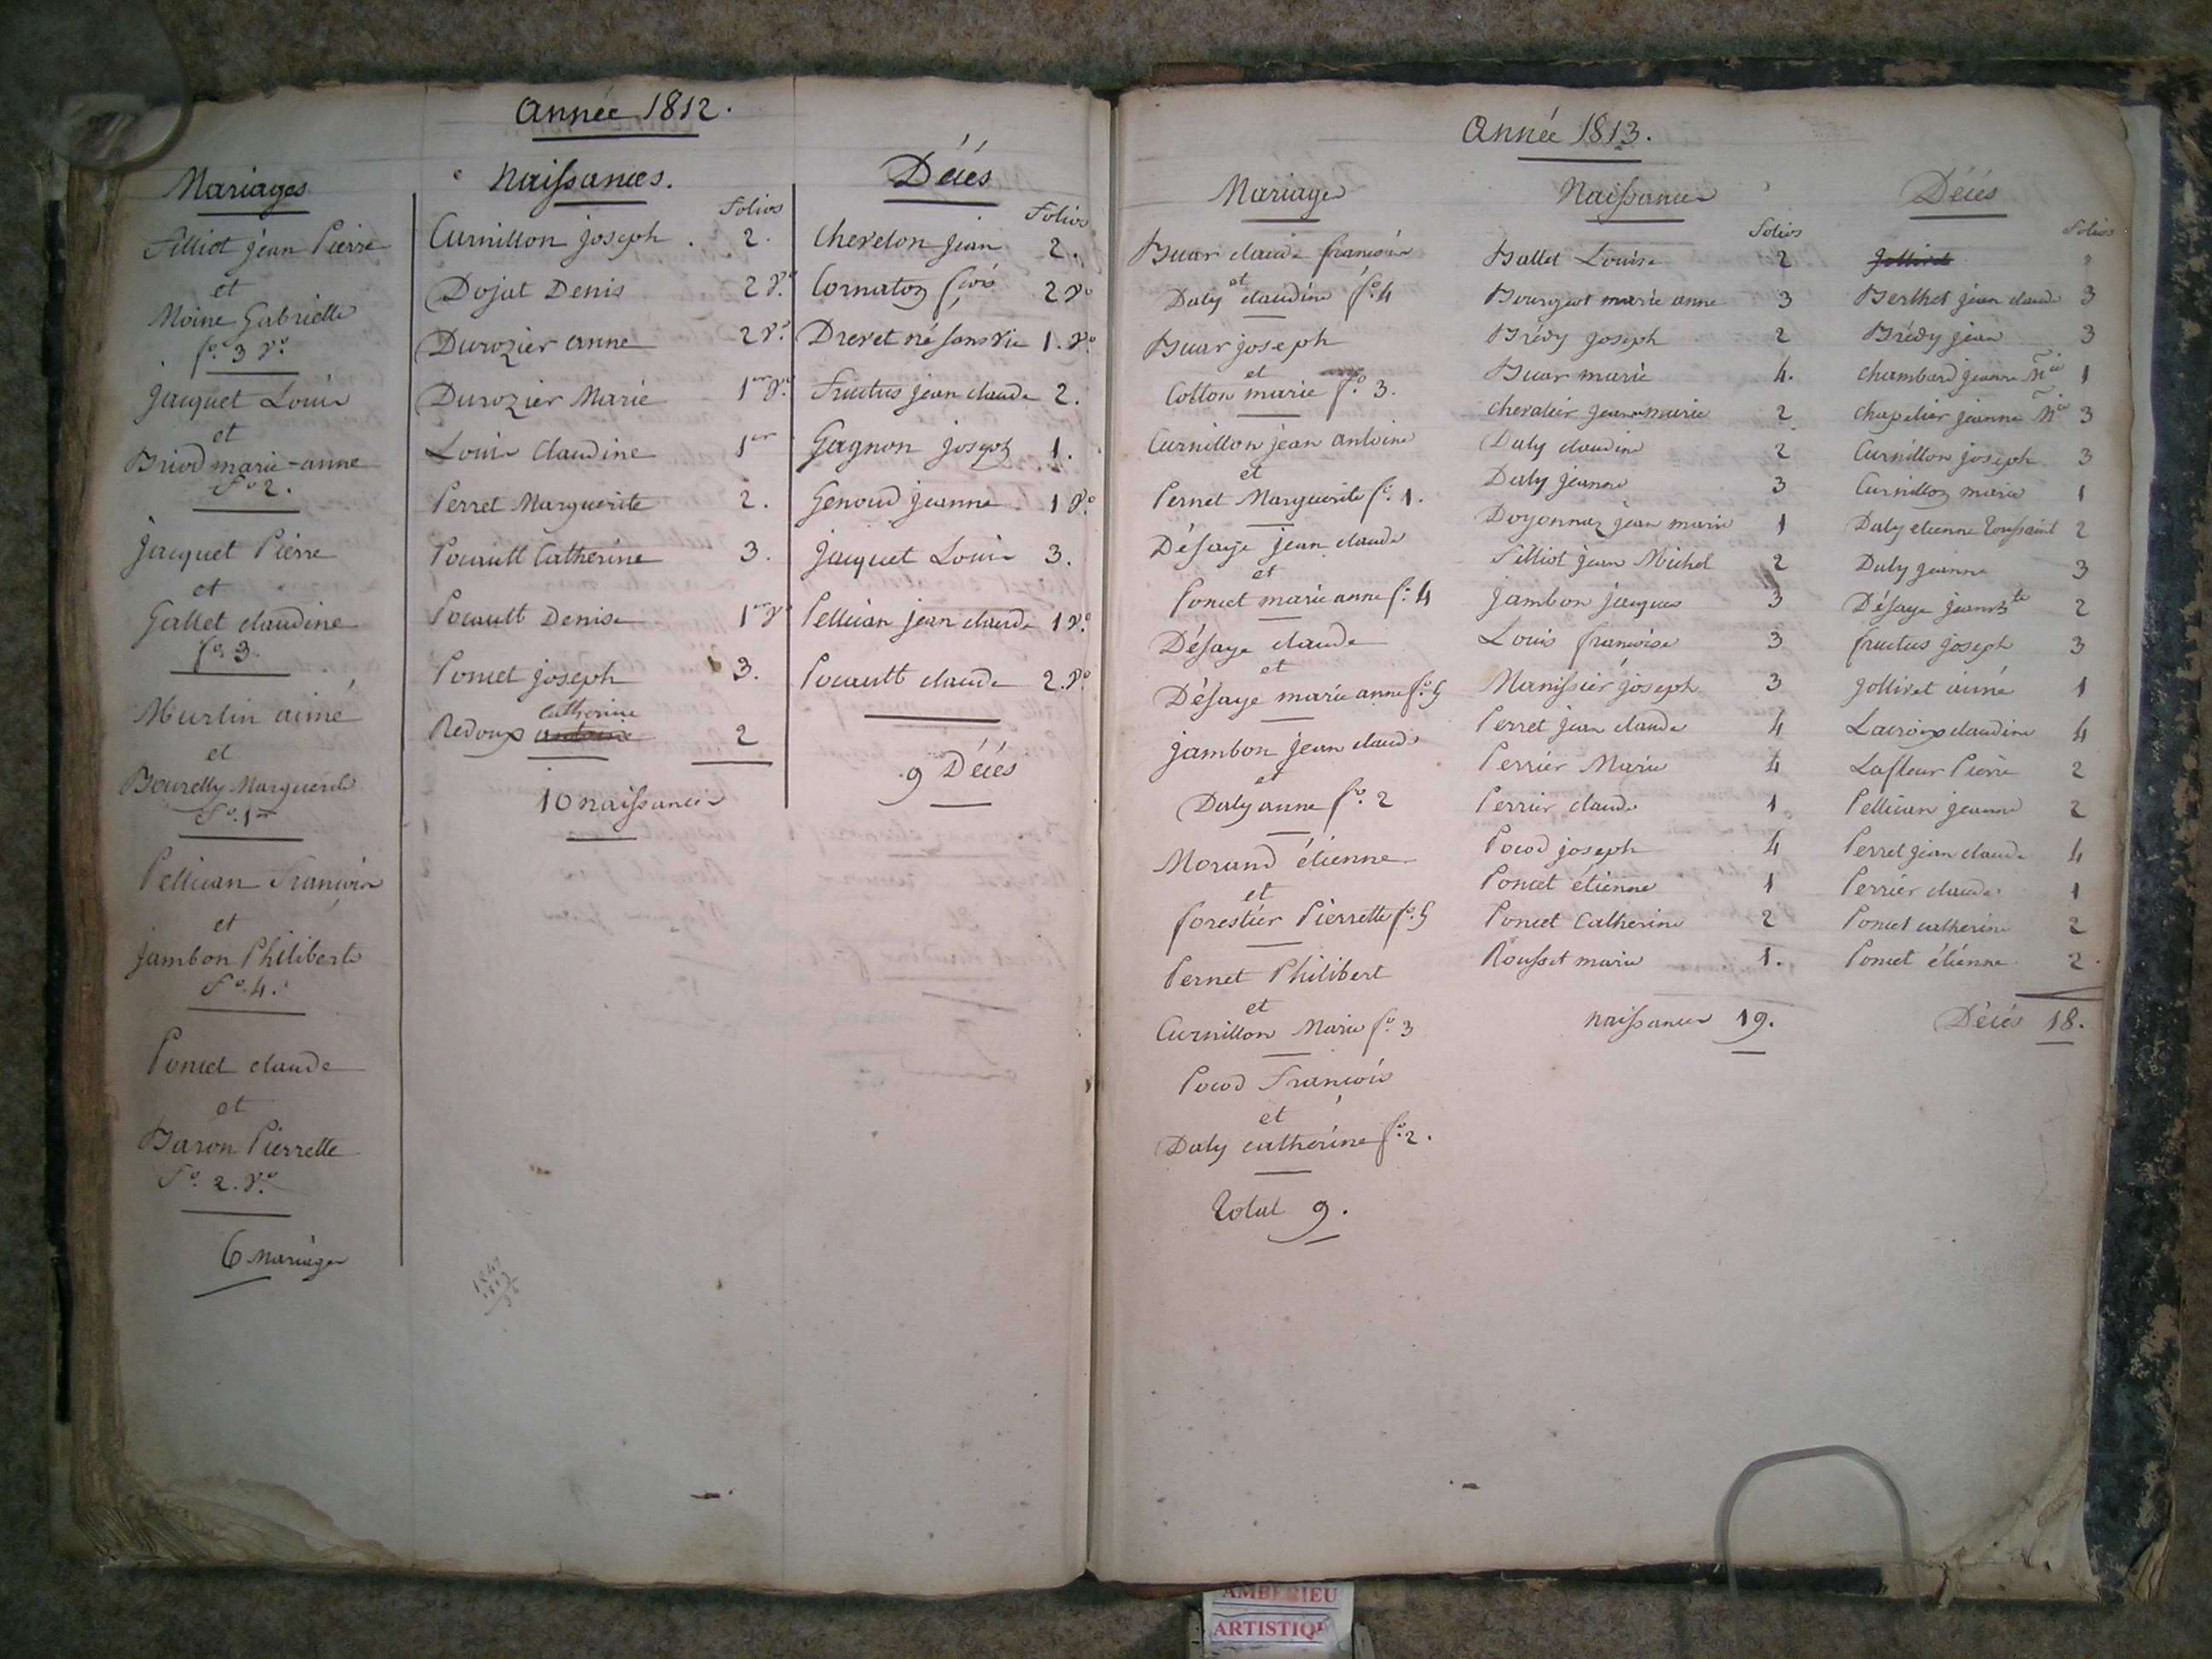 Année 1812.
Mariages
Filliot jean Pierre
et
Moine Gabrielle
fo. 3 vo.
Jacquet Louis
et
Briod marie-anne
Fo 2.
Jacquet Pierre
et
Gallet claudine
fo. 3.
Murlin aimé
et
Bourelly Marguerite
Fo. 1er
Pellican François
et
Jambon Philiberte
Fo. 4.
Poncet claude
et
Baron Pierrette
Fo. 2. vo.
6 Mariages
Naissances.
Folios
Curnillon joseph . 2.
Dojat Denis 2 vo.
Durozier anne 2 vo.
Durozier Marie 1er vo.
Louis Claudine 1er
Perret Marguerite 2.
Pocault Catherine 3.
Pocault Denise 1er vo
Poncet joseph 3.
Catherine
Redoux antoine 2
10 naissances
Décés
Folios
Chevelon jean 2.
Cornaton fçois 2 vo
Drevet né sans vie 1. vo.
Fructus jean claude 2.
Gagnon joseph 1.
Genoud jeanne 1 vo.
Jacquet Louis 3.
Pellican jean claude 1 vo.
Pocault claude 2. vo.
9 Décés
Année 1813.
Mariages
Buar claude françois
et
Daly claudine fo. 4
Buar joseph
et
Cotton marie fo. 3.
Curnillon jean antoine
et
Pernet Marguerite fo. 1.
Désaye jean claude
et
Poncet marie anne fo. 4
Désaye claude
et
Désaye marie anne fo. 5
Jambon jean claude
et
Daly anne fo. 2
Morand étienne
et
forestier Pierrette fo. 5
Pernet Philibert
et
Curnillon Marie fo. 3
Pocod François
et
Daly catherine fo. 2.
Total 9.
Naissances
Folios
Ballet Louise 2
Bourgeot marie anne 3
Brédy joseph 2
Buar marie 4.
Chevalier jeanne marie 2
Daly claudine 2
Daly jeanne 3
Doyonnaz jean marie 1
Filliot jean Michel 2
Jambon jacques 3
Louis françoise 3
Manissier joseph 3
Perret jean claude 4
Perrier Marie 4
Perrier claude 1
Pocod joseph 4
Poncet étienne 1
Poncet Catherine 2
Rousset marie 1.
naissances 19.
Décés
Folios
Jolliret
Berthet jean claude 3
Brédy jean 3
Chambard jeanne Mie 1
Chapelier jeanne Mie 3
Curnillon joseph 3
Curnillon marie 1
Daly etienne Toussaint 2
Daly jeanne 3
Désaye jean Bte 2
fructus joseph 3
Jolliret aimé 1
Lacroix claudine 4
Lafleur Pierre 2
Pellican jeanne 2
Perret jean claude 4
Perrier claude 1
Poncet catherine 2
Poncet étienne 2.
Décés 18.
AMBERIEU
ARTISTIQ